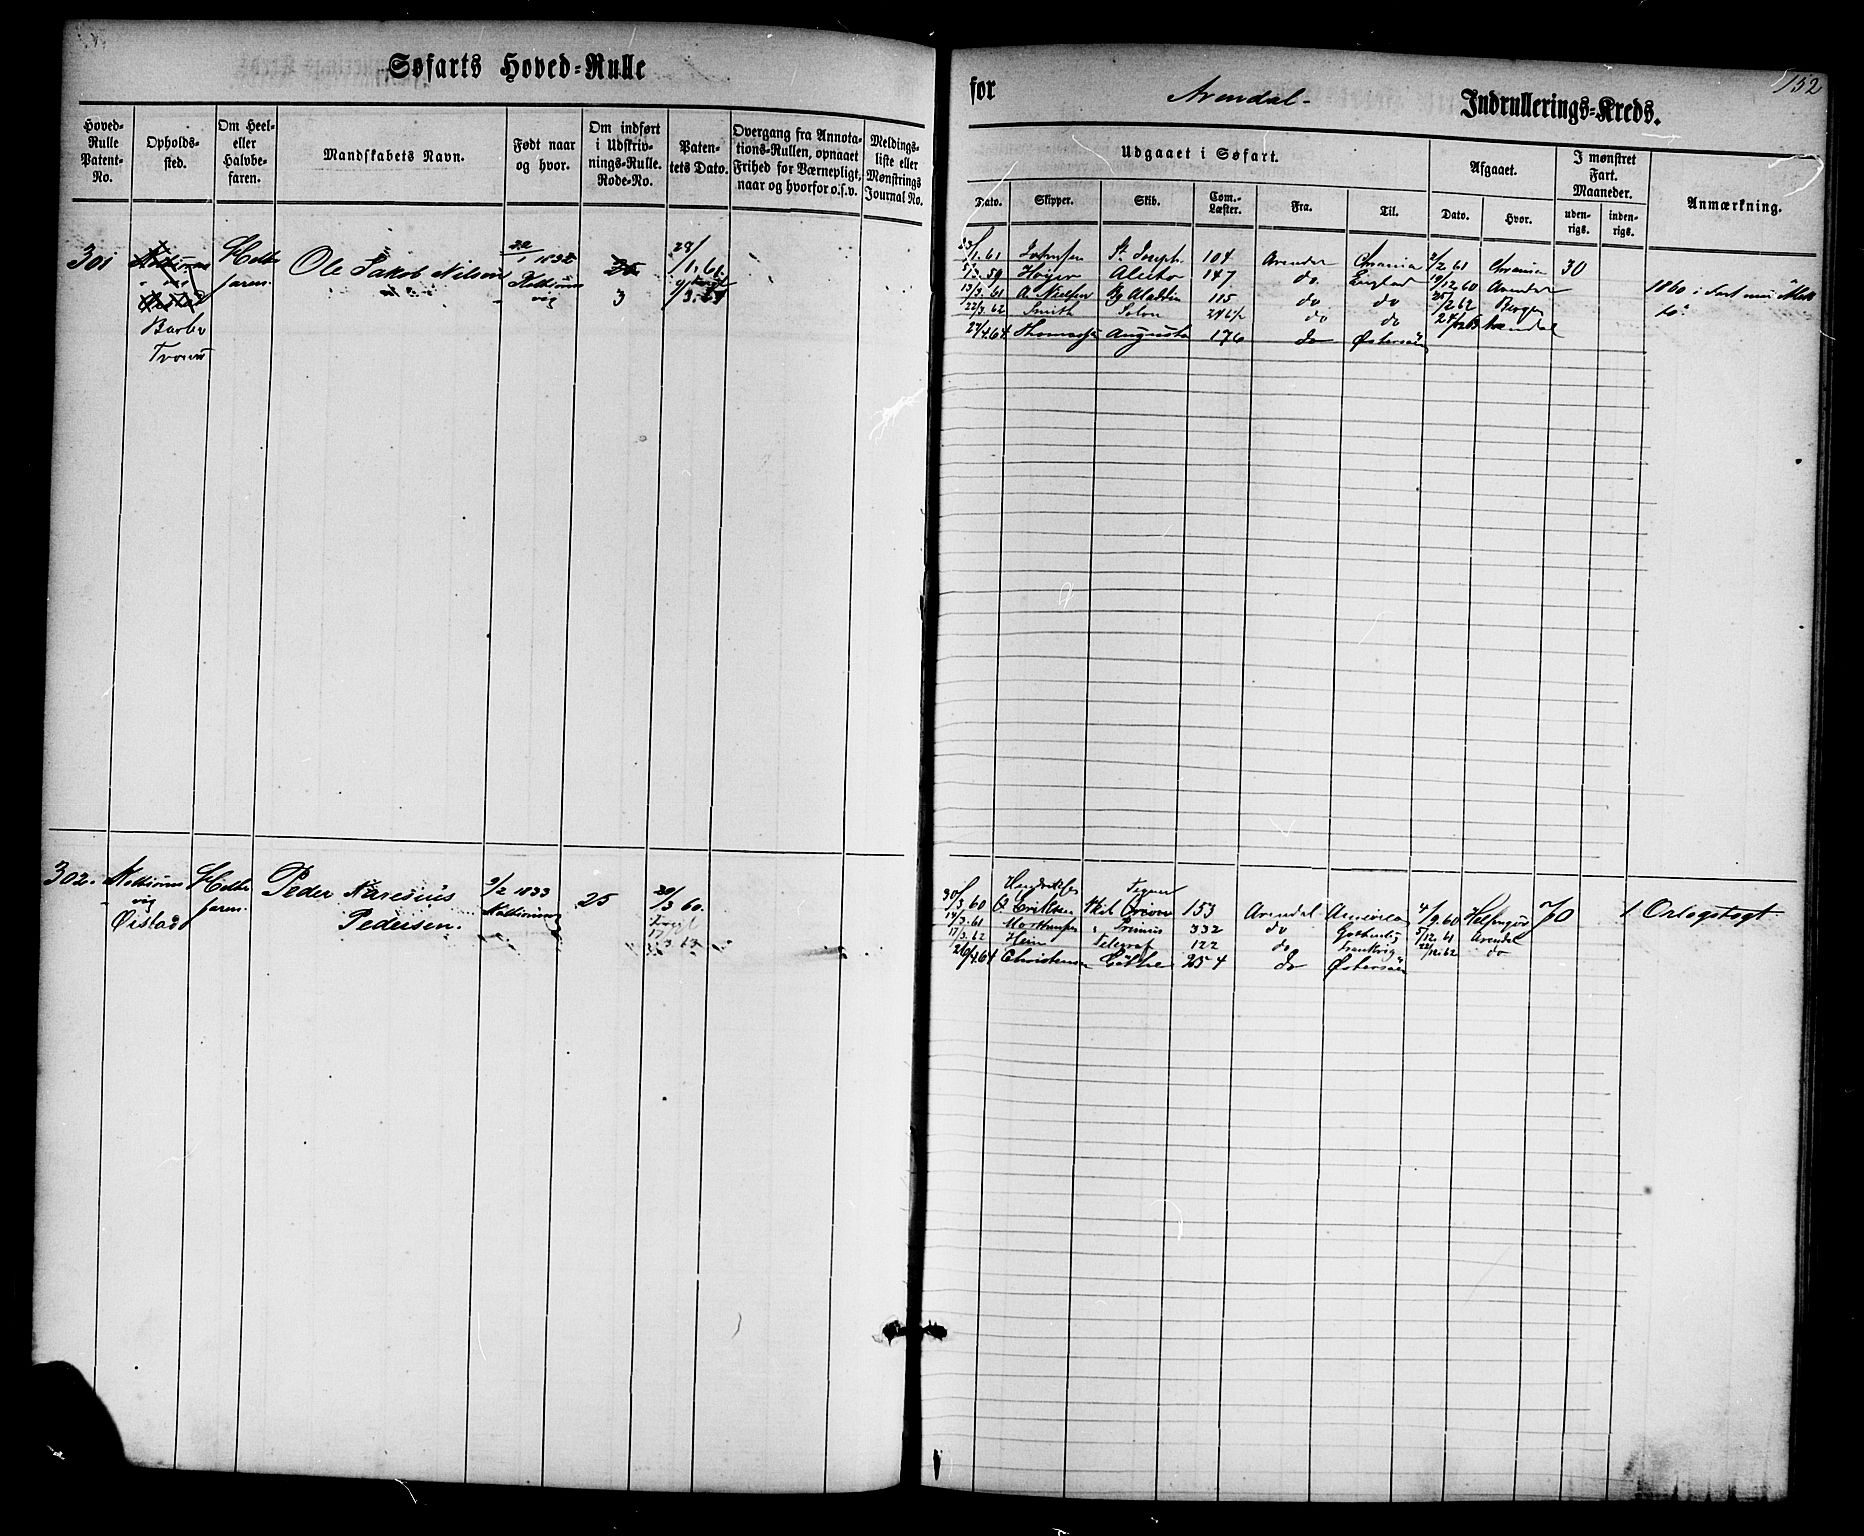 Søfarts Hoved-Rulle
for Arendal Indrullerings-Kreds.
152
Hoved-Rulle Patent-No.
Opholds-sted.
Om Heel- eller Halvbe-faren.
Mandskabets Navn.
Født naar og hvor.
Om indført i Udskriv-nings-Rulle. Rode-No.
Paten-tets Dato.
Overgang fra Annota-tions-Rullen, opnaaet Frihed for Værnepligt, naar og hvorfor o.s.v.
Meldings-liste eller Mønstrings Journal No.
Udgaaet i Søfart.
Dato. Skipper. Skib. Com.-Læster. Fra. Til.
Afgaaet.
Dato. Hvor.
I mønstret Fart. Maaneder.
uden-rigs. inden-rigs.
Anmærkning.
301
Barbo
Tromö
Ole Jakob Nilsen
22/1 1832
3
28/1. 61.
23/1. 61 Johnsen St. Joseph 104 Arendal 2/2 61 30
5/3. 59 Høyer Alecto 147 do. England 19/12 60 Arendal
13/3. 61 A. Nielsen Bg Aladdin 115 do do 25/2 62 Bergen
22/3. 62 Smith Solon 246 1/2 do do Arendal
27/4 64 Thomassen Augusta 176 do Østersöen
1860 i Fart
302.
Øistad
Peder Naresius
Pedersen.
9/2 1833
25
20/3 60.
30/3. 60 Eriksen 153 Arendal 4/9. 60 Helsingør 70 1 Orlogstogt
14/3. 61 332 do Gothenborg 5/12. 61 Arendal
17/3. 62 Hein Telegraf 122 do do
26/4 64 Christensen Göthe 254 do Østersöen